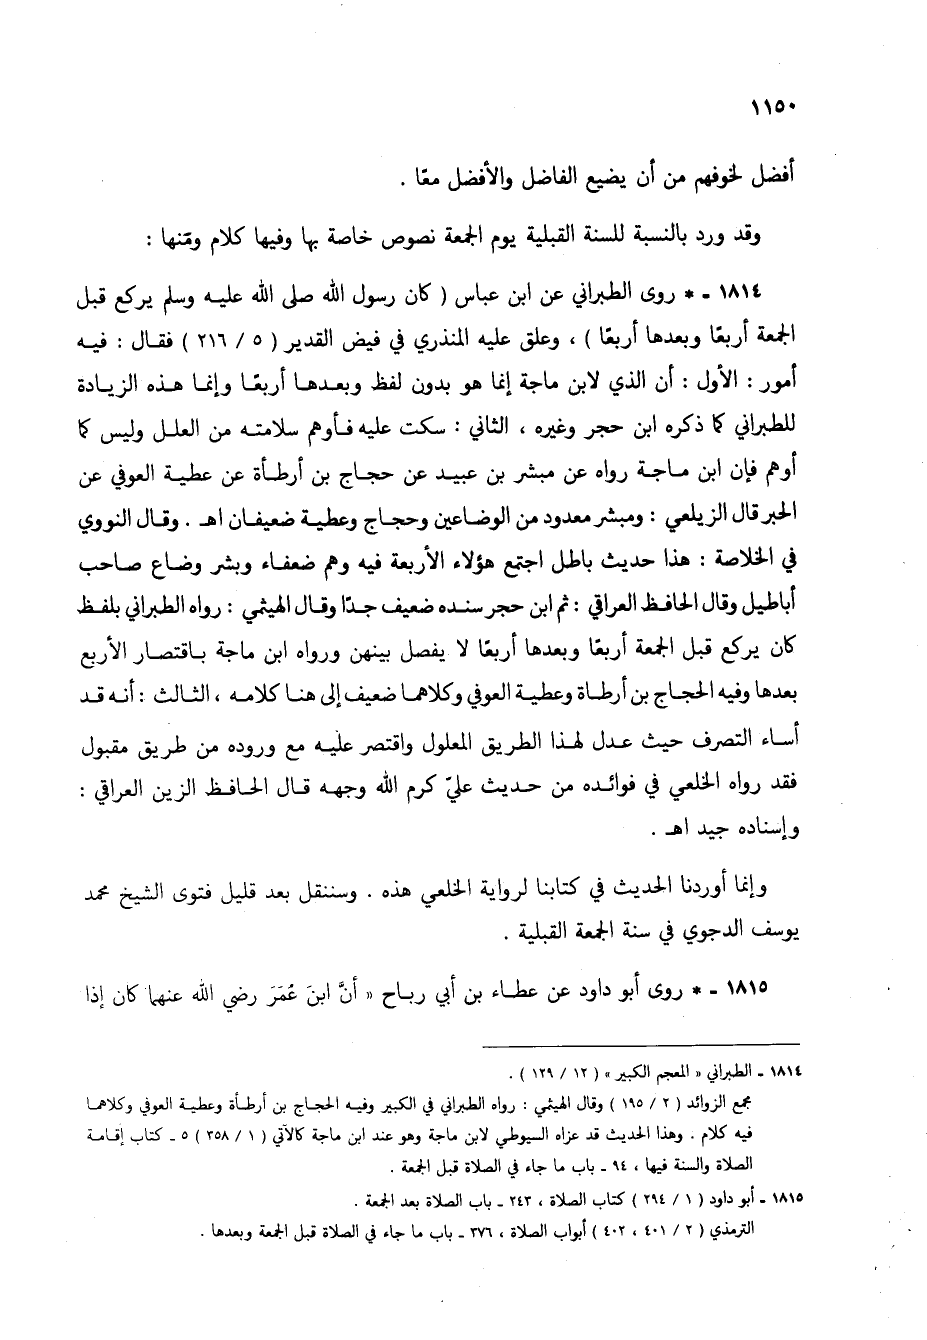 ١١٥٠
أفضل لخوفهم من أن يضيع الفاضل والأفضل معًا .
وقد ورد بالنسبة للسنة القبلية يوم الجمعة نصوص خاصة بها وفيها كلام ومنها :
١٨١٤ ـ * روى الطبراني عن ابن عباس ( كان رسول الله صلى الله عليه وسلم يركع قبل
الجمعة أربعًا وبعدها أربعًا ) ، وعلق عليه المنذري في فيض القدير ( ٥ / ٢١٦ ) فقال : فيه
أمور : الأول : أن الذي لابن ماجة إنما هو بدون لفظ وبعدها أربعًا وإنما هذه الزيادة
للطبراني كما ذكره ابن حجر وغيره ، الثاني : سكت عليه فأوهم سلامته من العلل وليس كما
أوهم فإن ابن ماجة رواه عن مبشر بن عبيد عن حجاج بن أرطأة عن عطية العوفي عن
الحبر قال الزيلعي : ومبشر معدود من الوضاعين وحجاج وعطية ضعيفان اهـ . وقال النووي
في الخلاصة : هذا حديث باطل اجتمع هؤلاء الأربعة فيه وهم ضعفاء وبشر وضاع صاحب
أباطيل وقال الحافظ العراقي : ثم ابن حجر سنده ضعيف جدًا وقال الهيثمي : رواه الطبراني بلفظ
كان يركع قبل الجمعة أربعًا وبعدها أربعًا لا يفصل بينهن ورواه ابن ماجة باقتصار الأربع
بعدها وفيه الحجاج بن أرطاة وعطية العوفي وكلاهما ضعيف إلى هنا كلامه ، الثالث : أنه قد
أساء التصرف حيث عدل لهذا الطريق المعلول واقتصر عليه مع وروده من طريق مقبول
فقد رواه الخلعي في فوائده من حديث عليّ كرم الله وجهه قال الحافظ الزين العراقي :
وإسناده جيد اهـ .
وإنما أوردنا الحديث في كتابنا لرواية الخلعي هذه . وسننقل بعد قليل فتوى الشيخ محمد
يوسف الدجوي في سنة الجمعة القبلية .
١٨١٥ ـ * روى أبو داود عن عطاء بن أبي رباح « أنَّ ابنَ عُمَرَ رضي الله عنهما كان إذا
١٨١٤ ـ الطبراني « المعجم الكبير » ( ١٢ / ١٢٩ ) .
مجمع الزوائد ( ٢ / ١٩٥ ) وقال الهيثمي : رواه الطبراني في الكبير وفيه الحجاج بن أرطأة وعطية العوفي وكلاهما
فيه كلام . وهذا الحديث قد عزاه السيوطي لابن ماجة وهو عند ابن ماجة كالآتي ( ١ / ٣٥٨ ) ٥ ـ كتاب إقامة
الصلاة والسنة فيها ، ٩٤ ـ باب ما جاء في الصلاة قبل الجمعة .
١٨١٥ ـ أبو داود ( ١ / ٢٩٤ ) كتاب الصلاة ، ٢٤٣ ـ باب الصلاة بعد الجمعة .
الترمذي ( ٢ / ٤٠١ ، ٤٠٢ ) أبواب الصلاة ، ٣٧٦ ـ باب ما جاء في الصلاة قبل الجمعة وبعدها .